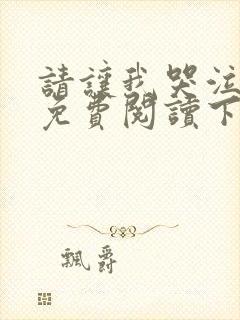 請讓我哭泣
免費閱讀下
飄爵